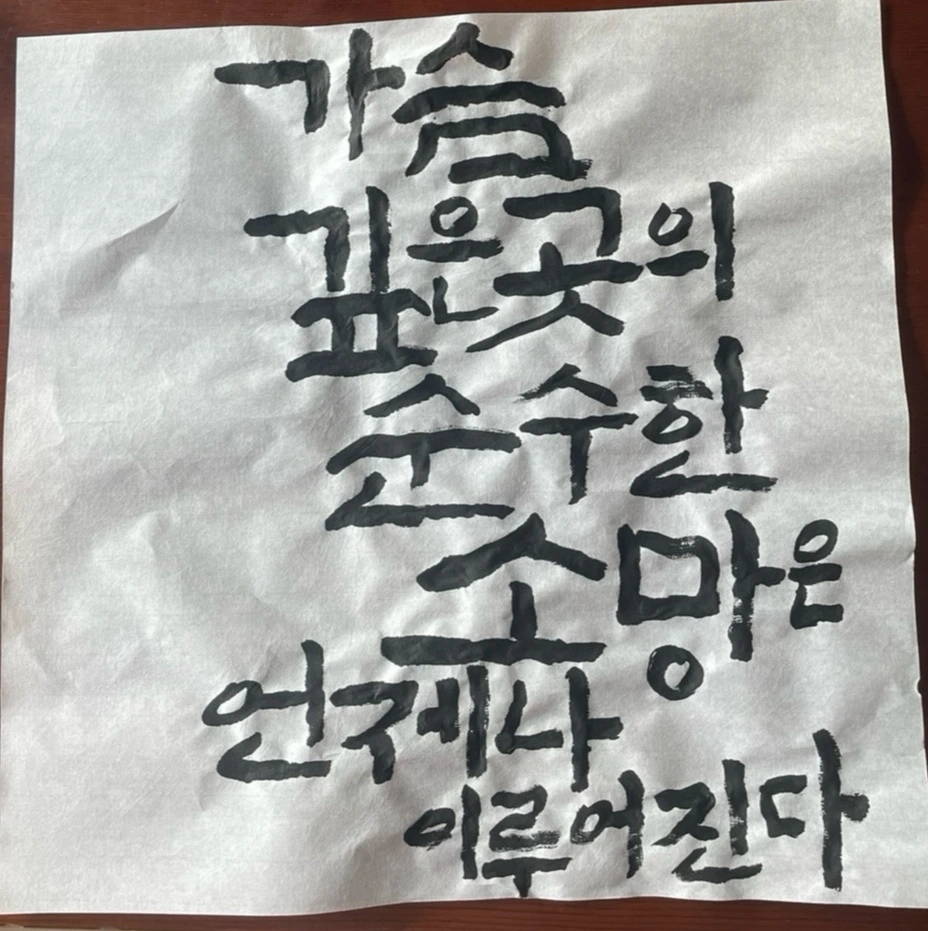 가슴
깊은곳의
순수한
소망은
언제나
이루어진다